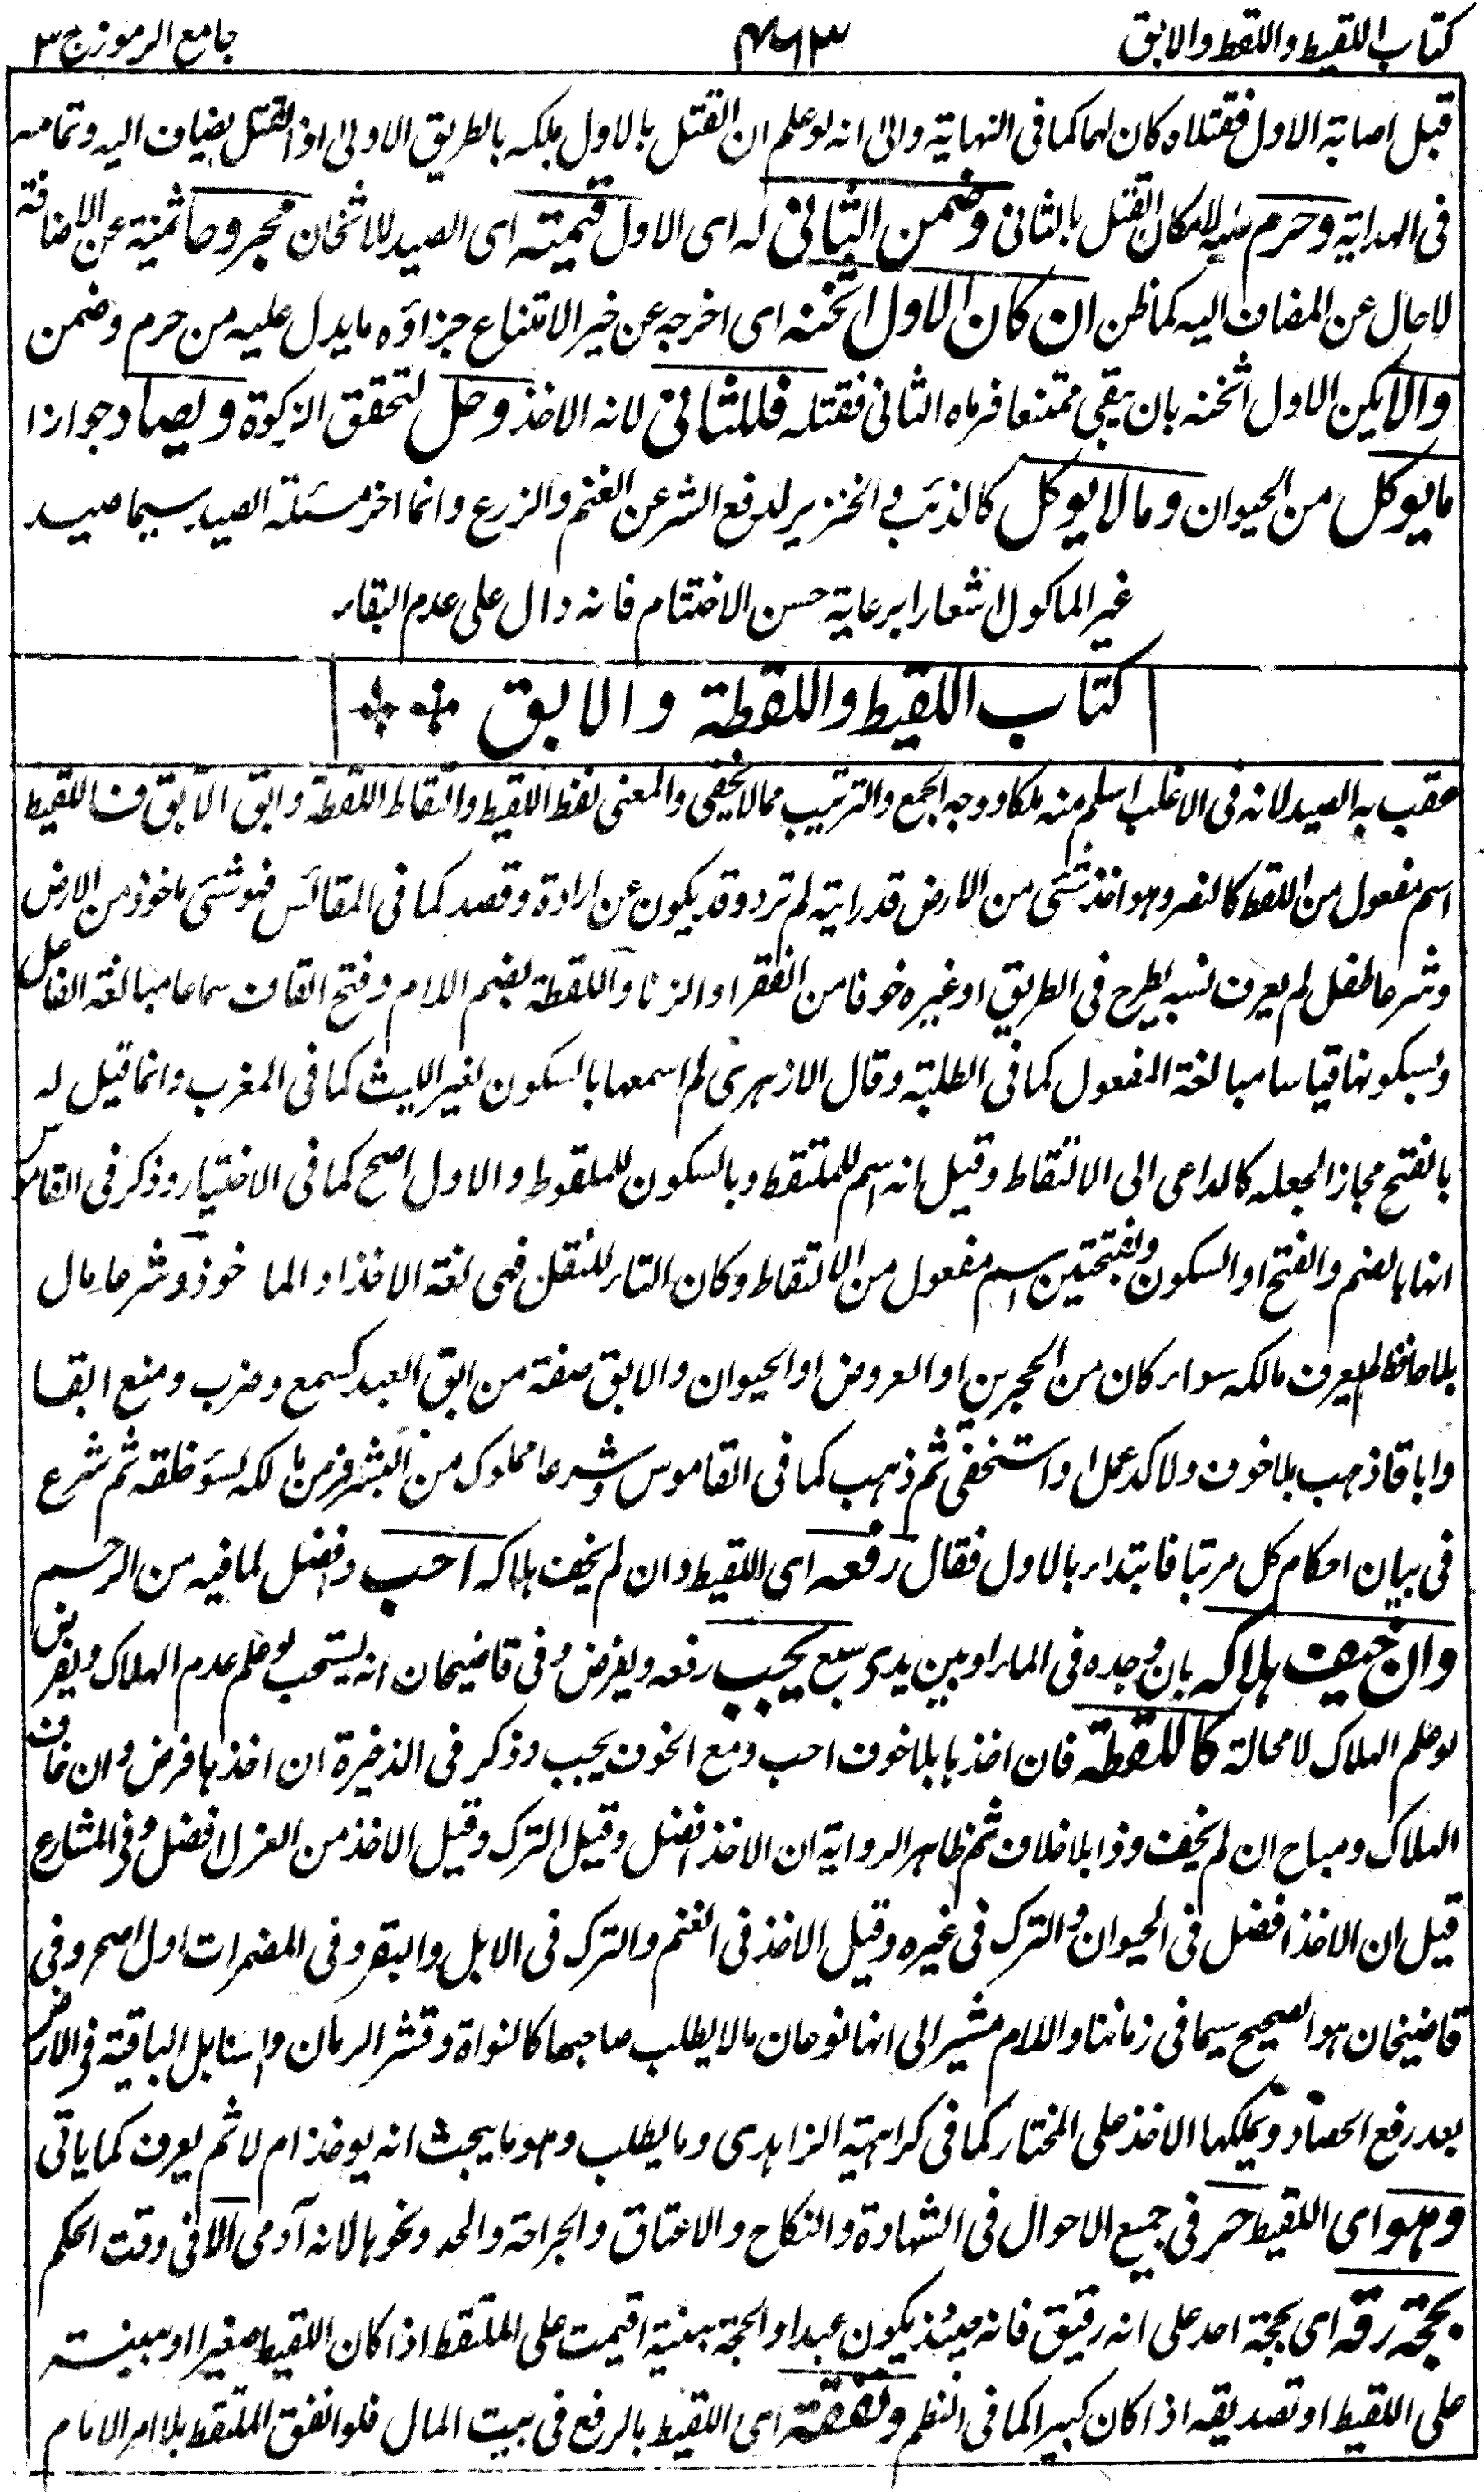 كتاب اللقيط واللقط والابق
٣٦٣
جامع الرموز ج ٣
قبل اصابة الاول فقتلاه كان لهما كما فى النهاية والى انه لو علم ان القتل بالاول ملكه بالطريق الاولى اذ القتل يضاف اليه وتمامه
فى الهداية وحرم منيه لامكان القتل بالثانى وضمن الثانى له اى الاول قيمته اى الصيد للاثخان مجروحا ثمنية عن الاضافة
لا حال عن المضاف اليه كما ظن ان كان الاول اثخنه اى اخرجه عن خير الامتناع جزاؤه ما يدل عليه من حرم وضمن
والا يكن الاول اثخنه بان يبقى ممتنعا فرماه الثانى فقتله فللثانى لانه الاخذ وحل لتحقق الزكوة ويصاد جوازا
ما يوكل من الحيوان وما لا يوكل كالذئب والخنزير لدفع الشر عن الغنم والزرع وانما اخر مسئلة الصيد سيما صيد
غير الماكول اشعارا برعاية حسن الاختتام فانه دال على عدم البقاء
كتاب اللقيط واللقطة والابق
عقب به الصيد لانه فى الاغلب اسلم منه ملكا ووجه الجمع والترتيب مما لا يخفى والمعنى لقط اللقيط والتقاط اللقطة وابق الآبق فاللقيط
اسم مفعول من اللقط كالنصر وهو اخذ شئى من الارض قد راتيه لم ترد وقد يكون عن ارادة وقصد كما فى المقائس فهو شئى ماخوذ من الارض
وشرعا طفل لم يعرف نسبه يطرح فى الطريق او غيره خوفا من الفقر او الزنا واللقطة بضم اللام وفتح القاف سماعا مبالغة الفاعل
وبسكونها قياسا مبالغة المفعول كما فى الطلبة وقال الازهرى لم اسمعها بالسكون لغير الليث كما فى المغرب وانما قيل له
بالفتح مجازا لجعله كالداعى الى الالتقاط وقيل انه اسم للملتقط وبالسكون للملقوط والاول اصح كما فى الاختيار وذكر فى القاموس
انها بالضم والفتح او السكون وبفتحتين اسم مفعول من الالتقاط وكان التاء للنقل فهى لغة الاخذ او الماخوذ وشرعا مال
بلا حافظ لم يعرف مالكه سواء كان من الحجرين او العروض او الحيوان والابق صفة من ابق العبد كسمع وضرب ومنع ابقا
واباقا ذهب بلا خوف ولا كد عمل او استخفى ثم ذهب كما فى القاموس وشرعا مملوك من البشر فر من مالكه لسوء خلقه ثم شرع
فى بيان احكام كل مرتبا فابتداء بالاول فقال رفعه اى اللقيط وان لم يخف هلاكه احب وافضل لما فيه من الرحم
وان خيف هلاكه بان وجده فى الماء او بين يدى سبع يجب رفعه ويفرض وفى قاضيخان انه يستحب لو علم عدم الهلاك ويفرض
لو علم الهلاك لا محالة كاللقطة فان اخذها بلا خوف احب ومع الخوف يجب وذكر فى الذخيرة ان اخذها فرض وان خاف
الهلاك ومباح ان لم يخف وذا بلا خلاف ثم ظاهر الرواية ان الاخذ افضل وقيل الترك وقيل الاخذ من العزل افضل وفى المشارع
قيل ان الاخذ افضل فى الحيوان والترك فى غيره وقيل الاخذ فى الغنم والترك فى الابل والبقر وفى المضمرات اول اصح وفى
قاضيخان هو الصحيح سيما فى زماننا واللام مشير الى انها نوعان ما لا يطلب صاحبها كالنواة وقشر الرمان والسنابل الباقية فى الارض
بعد رفع الحصاد ويملكها الاخذ على المختار كما فى كراهية الزاهدى وما يطلب وهو ما يبحث انه يوخذ ام لا ثم يعرف كما ياتى
وهو اى اللقيط حر فى جميع الاحوال فى الشهادة والنكاح والاعتاق والجراحة والحد ونحوها لانه آدمى الا فى وقت الحكم
بحجة رقه اى بحجة احد على انه رقيق فانه حينئذ يكون عبدا والحجة بينة اقيمت على الملتقط اذا كان اللقيط صغيرا او ببينة
على اللقيط او تصديقه اذا كان كبيرا كما فى النظم ونفقته اى اللقيط بالرفع فى بيت المال فلو انفق الملتقط بلا امر الامام